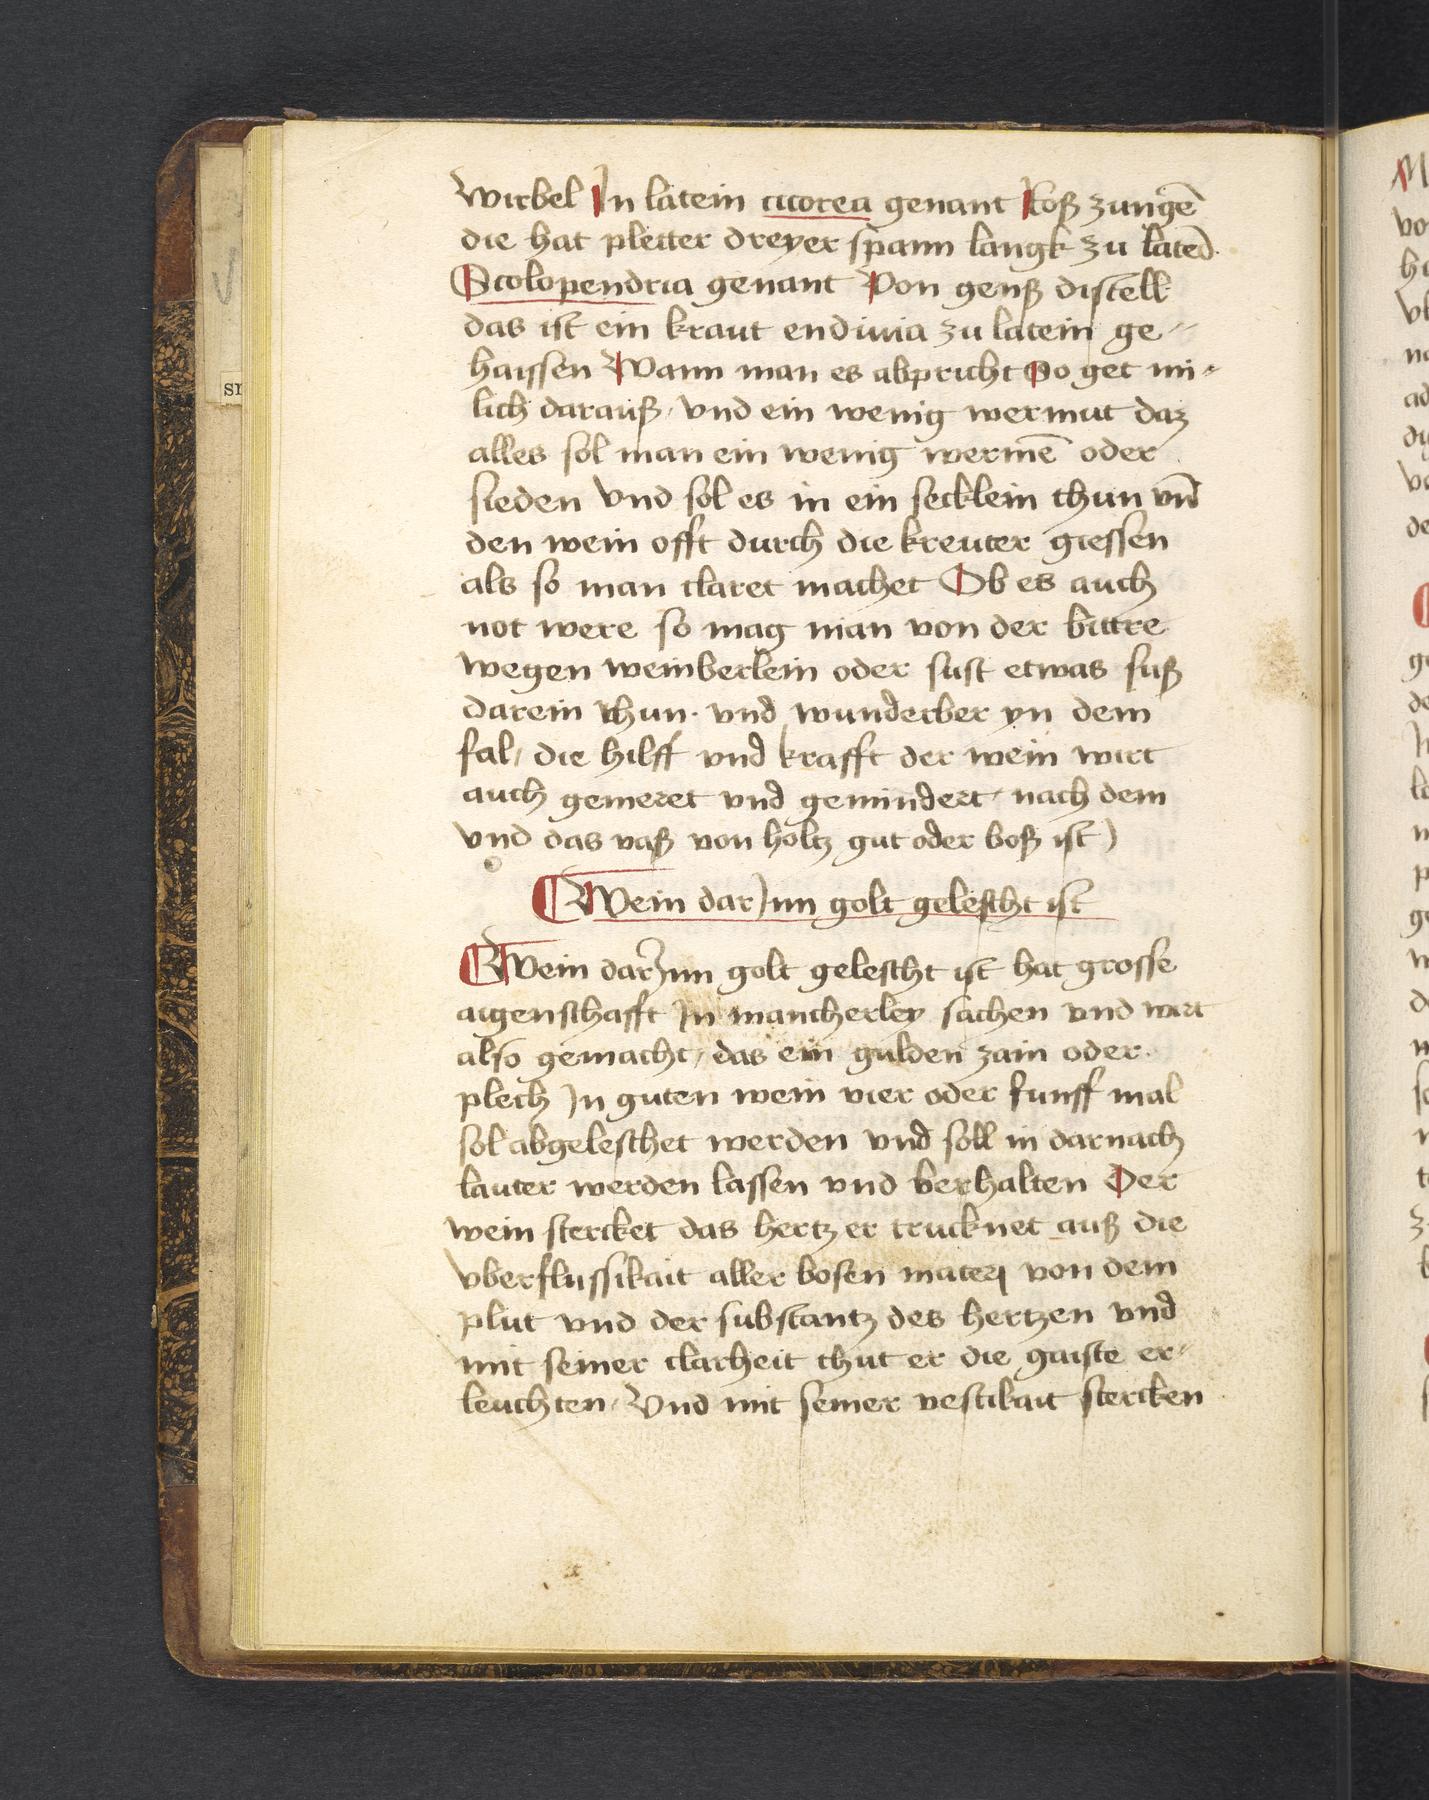 Wirbel In latein cicorea genant Roß zungē
die hat pletter dreyer spann langk zu lateī
Scolopendria genant Von genß distell
das ist ein kraut endiuia zu latein ge-
haissen Wann man es abpricht So get mi-
lich darauß / vnd ein wenig wermut daz
alles sol man ein wenig wermē oder
sieden vnd sol es in ein secklein thun vn̄
den wein offt durch die kreuter giessen
als so man claret machet Ob es auch
not were so mag man von der bittre
wegen weinberlein oder sust etwas suß
darein thun · vnd wunderber yn dem
fal / die hilff vnd krafft der wein wirt
auch gemeret vnd gemindert / nach dem
vnd das vaß von holtz gut oder boß ist)
Wein darJnn golt gelescht ist
Wein darJnn golt gelescht ist hat grosse
aigenschafft Jn mancherley sachen vnd wirt
also gemacht / das ein gulden zain oder
plech Jn guten wein vier oder funff mal
sol abgeleschet werden vnd soll in darnach
lauter werden lassen vnd berhalten Der
wein stercket das hertz er trucknet auß die
vberflussikait aller bosen materj von dem
plut vnd der substantz des hertzen vnd
mit seiner clarheit thut er die gaiste er-
leuchten / Vnd mit seiner vestikait stercken